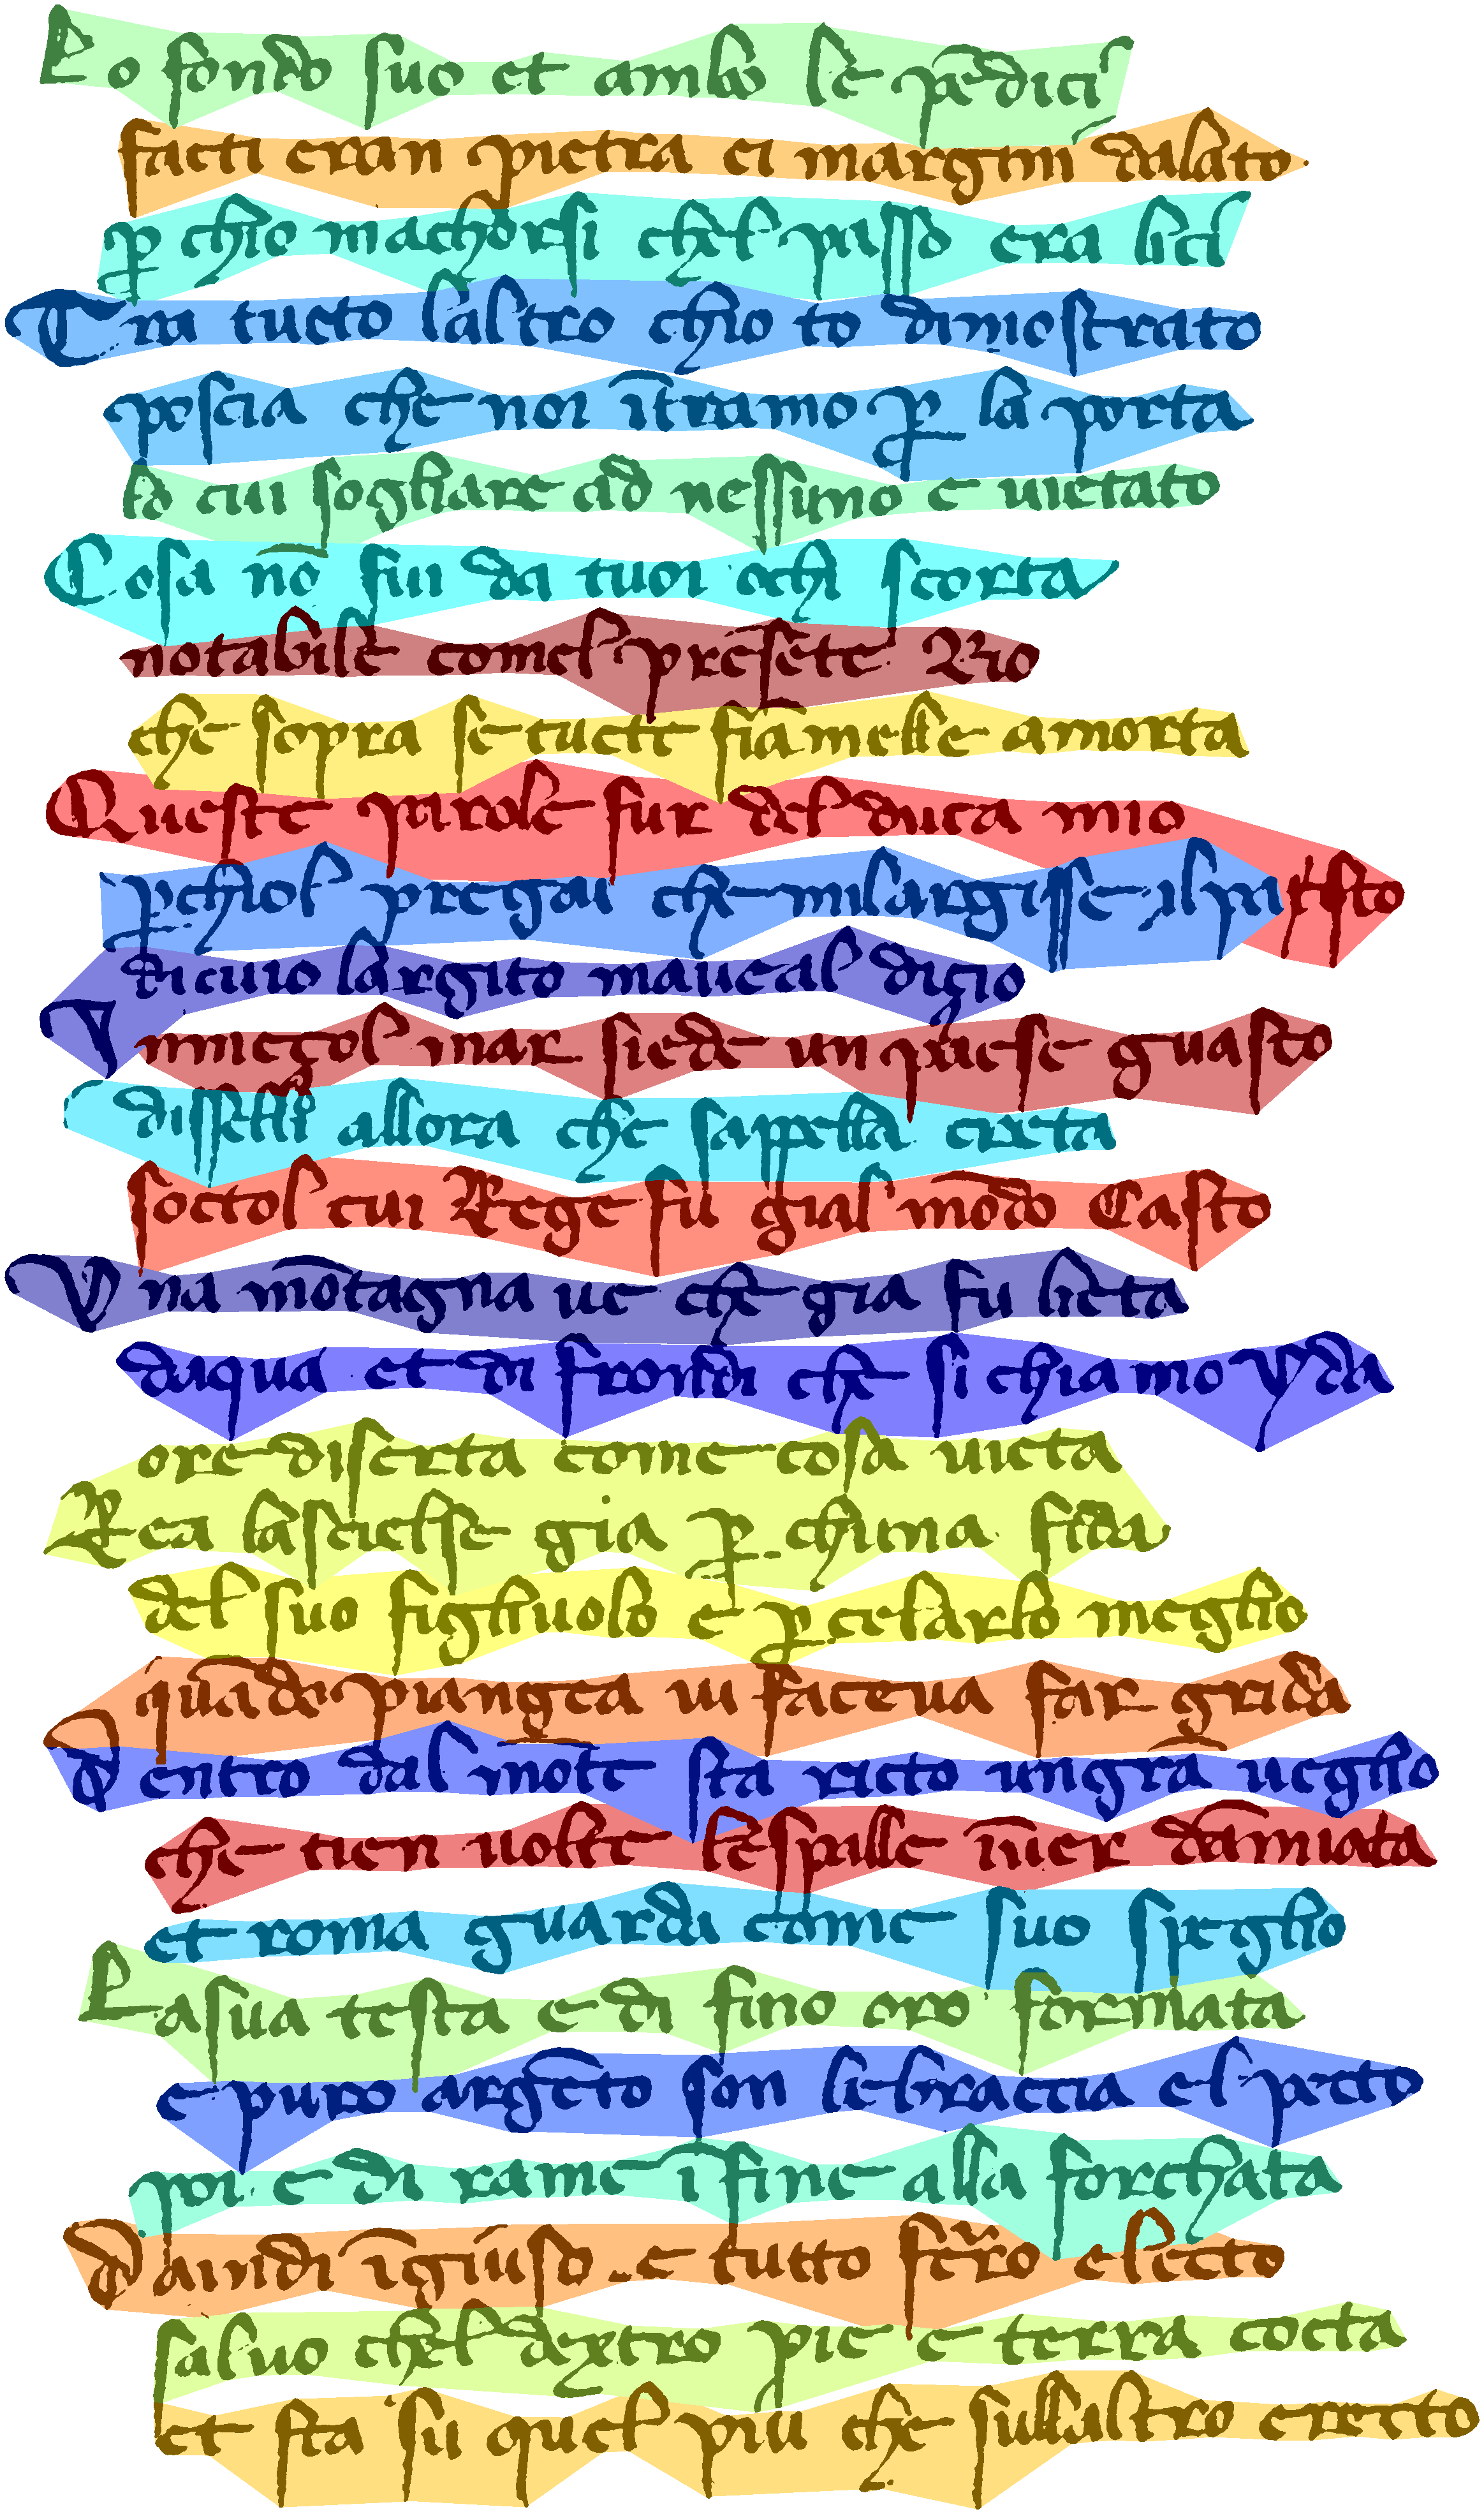 Lo fondo suo et ambo le pẽdici
facti eran pietra ei margini dallato
ꝑ chio machorsi chel passo era lici
Tra tucto laltro chio to dimostrato
poscia che noi ītramo ꝑ la porta
lo cui sogliare ad nessuno e uietato
Cosa nō fu da tuoi ochi scorta
notabile comel presente rio
che sopra se tucte fiamelle amorta
Queste parole fur del duca mio
ꝑ chiol pregai che milargisse il pasto
di cui largito maueal disio
In mezol mar siede un paese guasto
disselli allora che sappella creta
soctol cui rege fu gial mōdo casto
Vna mōtagna ue che gia fu lieta
daqua et di frondi che si chiamo yda
ore diserta come cosa uieta
Rea la scielse gia ꝑ chuna fida
del suo figliuolo e ꝑ celarlo meglio
quādo piangea ui facea far grida
Dentro dal mōte sta ricto un gra ueglio
che tien uolte le spalle īuer damiata
et roma guarda come suo speglio
La sua testa e di fino oro formata
e puro argēto son le braccia el pecto
poi e di rame ī fine alla forchata
Da indi īgiuso e tutto ferro electo
saluo chel dextro pie e terra cocta
et sta su quel piu che sullaltro erecto